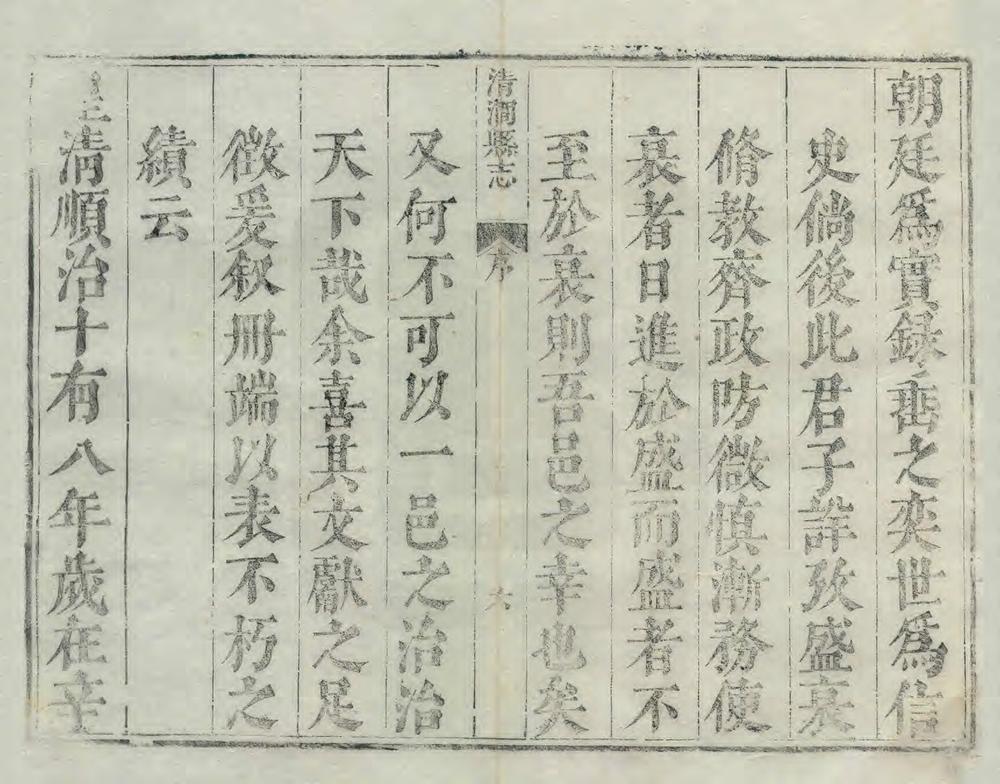 朝廷爲實録垂之奕世爲信
史倘後此君子詳攷盛衰
脩教齊政防微慎漸務使
衰者日進於盛而盛者不
至於衰則吾邑之幸也矣
清澗縣志 序 六
又何不可以一邑之治治
天下哉余喜其文獻之足
徵爰叙冊端以表不朽之
績云
皇清順治十有八年歲在辛